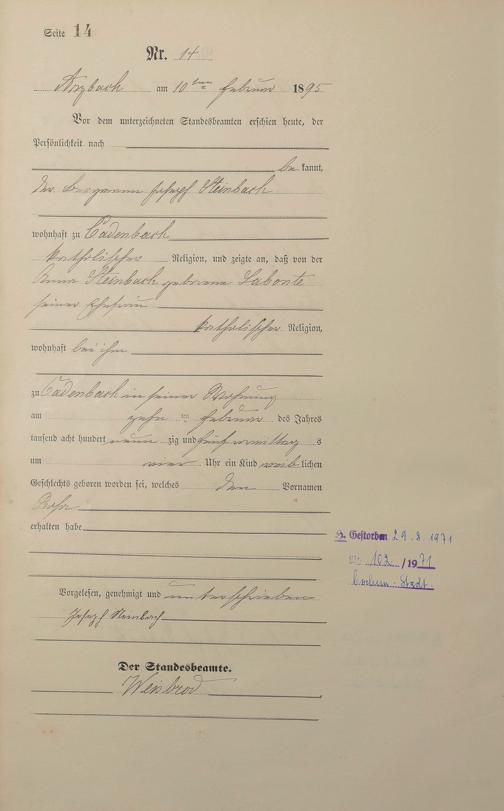 Seite 14
Nr. 14
Arzbach am 10ten Februar 1895
Vor dem unterzeichneten Standesbeamten erschien heute, der
Persönlichkeit nach
be kannt,
der Bergmann Joseph Steinbach
wohnhaft zu Cadenbach
katholischer Religion, und zeigte an, daß von der
Anna Steinbach geborene Labonte
seiner Ehefrau
katholischer Religion,
wohnhaft bei ihm
zu Cadenbach in seiner Wohnung
am zehn ten Februar des Jahres
tausend acht hundert neun zig und fünf vormittag s
um vier Uhr ein Kind weib lichen
Geschlechts geboren worden sei, welches den Vornamen
Rosa
erhalten habe
Gestorben 29.8.1971
Nr. 102 / 1971
Bochum-Stadt
Vorgelesen, genehmigt und unterschrieben
Joseph Steinbach
Der Standesbeamte.
Weisbrod